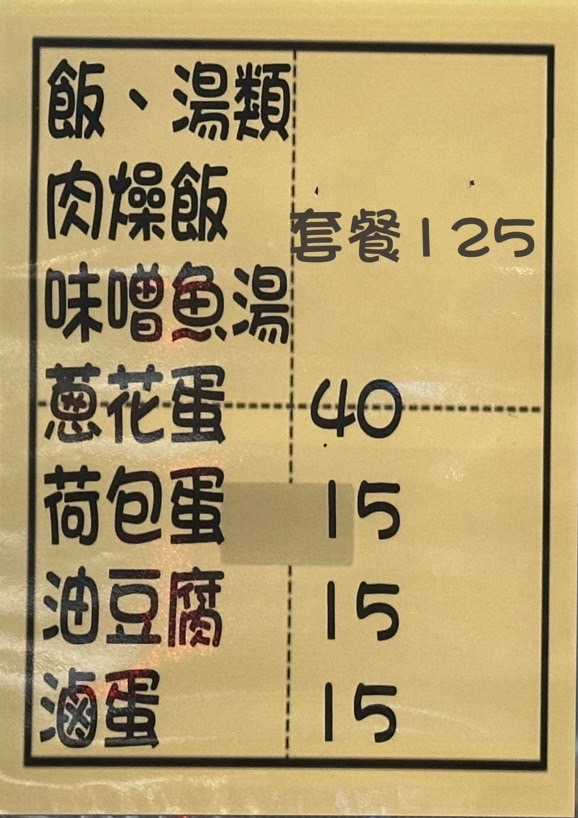 飯、湯類
肉燥飯
套餐125
味噌魚湯
蔥花蛋 40
荷包蛋 15
油豆腐 15
滷蛋 15